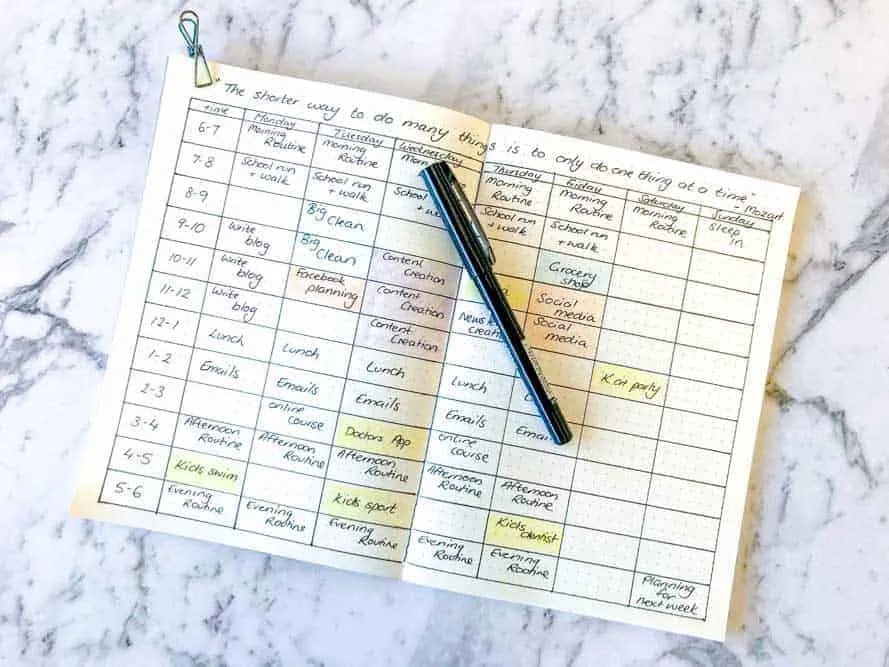 The shorter way to do many things is to only do one thing at a time"
- Mozart
time
Monday
Tuesday
Wednesday
Thursday
Friday
Saturday
Sunday
6-7
Morning
Routine
Morning
Routine
Morning
Routine
Morning
Routine
Morning
Routine
Sleep
in
7-8
School run
+ walk
School run
+ walk
School
School run
+ walk
School run
+ walk
8-9
Big
Clean
9-10
Write
blog
Big
Clean
Content
Creation
Grocery
shop
10-11
Write
blog
Facebook
planning
Content
Creation
Social
media
11-12
Write
blog
Content
Creation
Social
media
12-1
Lunch
Lunch
Lunch
Lunch
K at party
1-2
Emails
Emails
Emails
Emails
2-3
online
course
Doctors App
online
course
3-4
Afternoon
Routine
Afternoon
Routine
Afternoon
Routine
Afternoon
Routine
Afternoon
Routine
4-5
Kids swim
Kids sport
Kids
dentist
5-6
Evening
Routine
Evening
Routine
Evening
Routine
Evening
Routine
Evening
Routine
Planning
for
next week